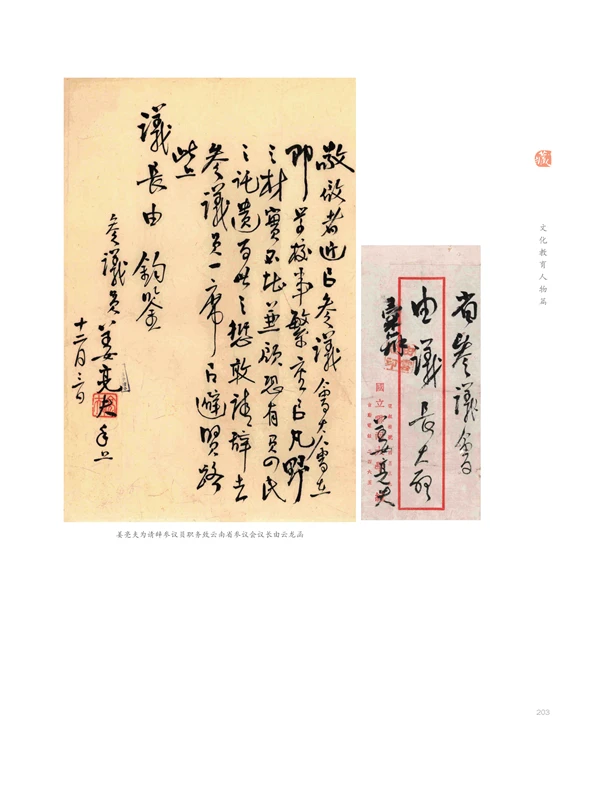 敬啟者近日參議會大會在
即學校事繁重以凡野
之材實不堪兼顧恐有負四民
之託遺百世之愆敢請辭去
參議員一席以避賢路
此上
議長由 鈞鑒
參議員姜亮夫手上
十二月三日
省參議會
由議長大啟
姜亮夫
國立
文化教育人物篇
姜亮夫为请辞参议员职务致云南省参议会议长由云龙函
203